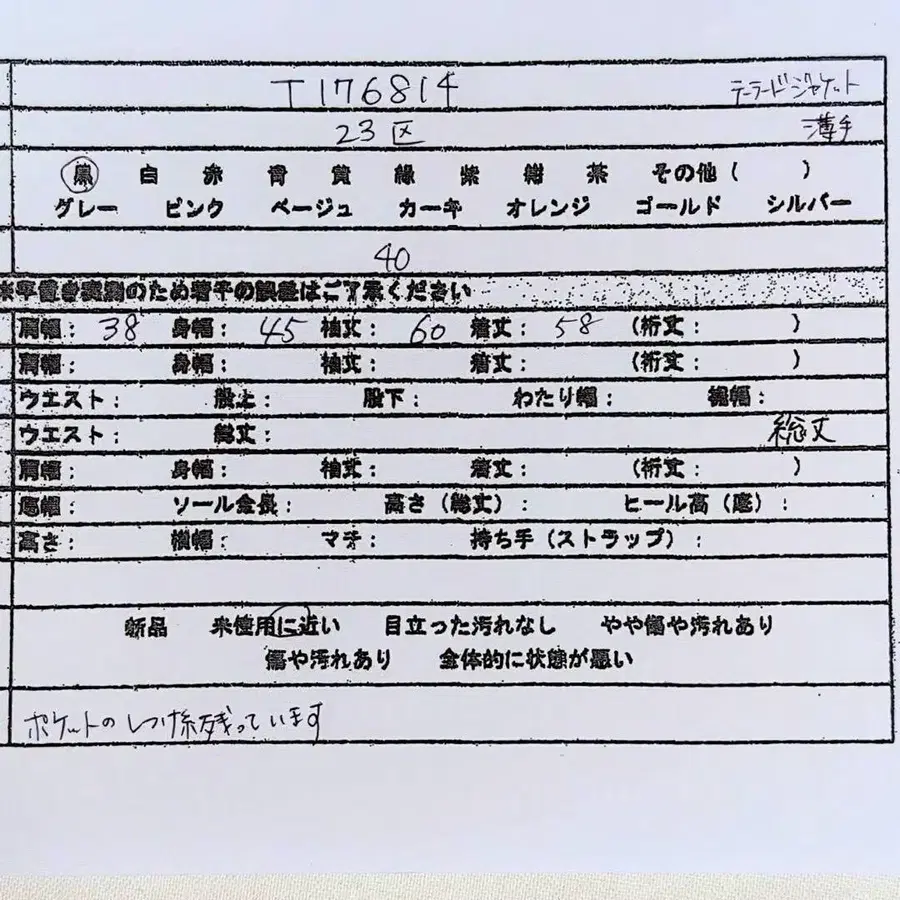 T176814 テーラードジャケット
23区 薄手
黒 白 赤 青 黄 緑 紫 紺 茶 その他( )
グレー ピンク ベージュ カーキ オレンジ ゴールド シルバー
40
※平置き実測のため若干の誤差はご了承ください
肩幅: 38 身幅: 45 袖丈: 60 着丈: 58 (裄丈: )
肩幅: 身幅: 袖丈: 着丈: (裄丈: )
ウエスト: 股上: 股下: わたり幅: 裾幅:
ウエスト: 総丈: 総丈
肩幅: 身幅: 袖丈: 着丈: (裄丈: )
底幅: ソール全長: 高さ(総丈): ヒール高(底):
高さ: 横幅: マチ: 持ち手(ストラップ):
新品 未使用に近い 目立った汚れなし やや傷や汚れあり
傷や汚れあり 全体的に状態が悪い
ポケットのしつけ糸残っています